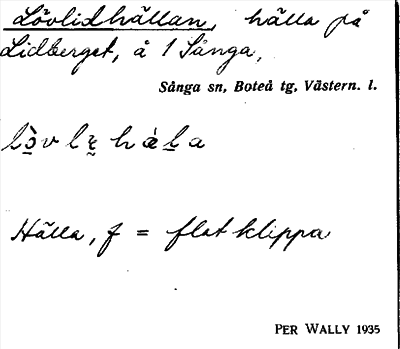 Lövlidhällan, hälla på
Lidberget, å 1 Sånga,
Sånga sn, Boteå tg, Västern. l.
Hälla, f = flat klippa
PER WALLY 1935